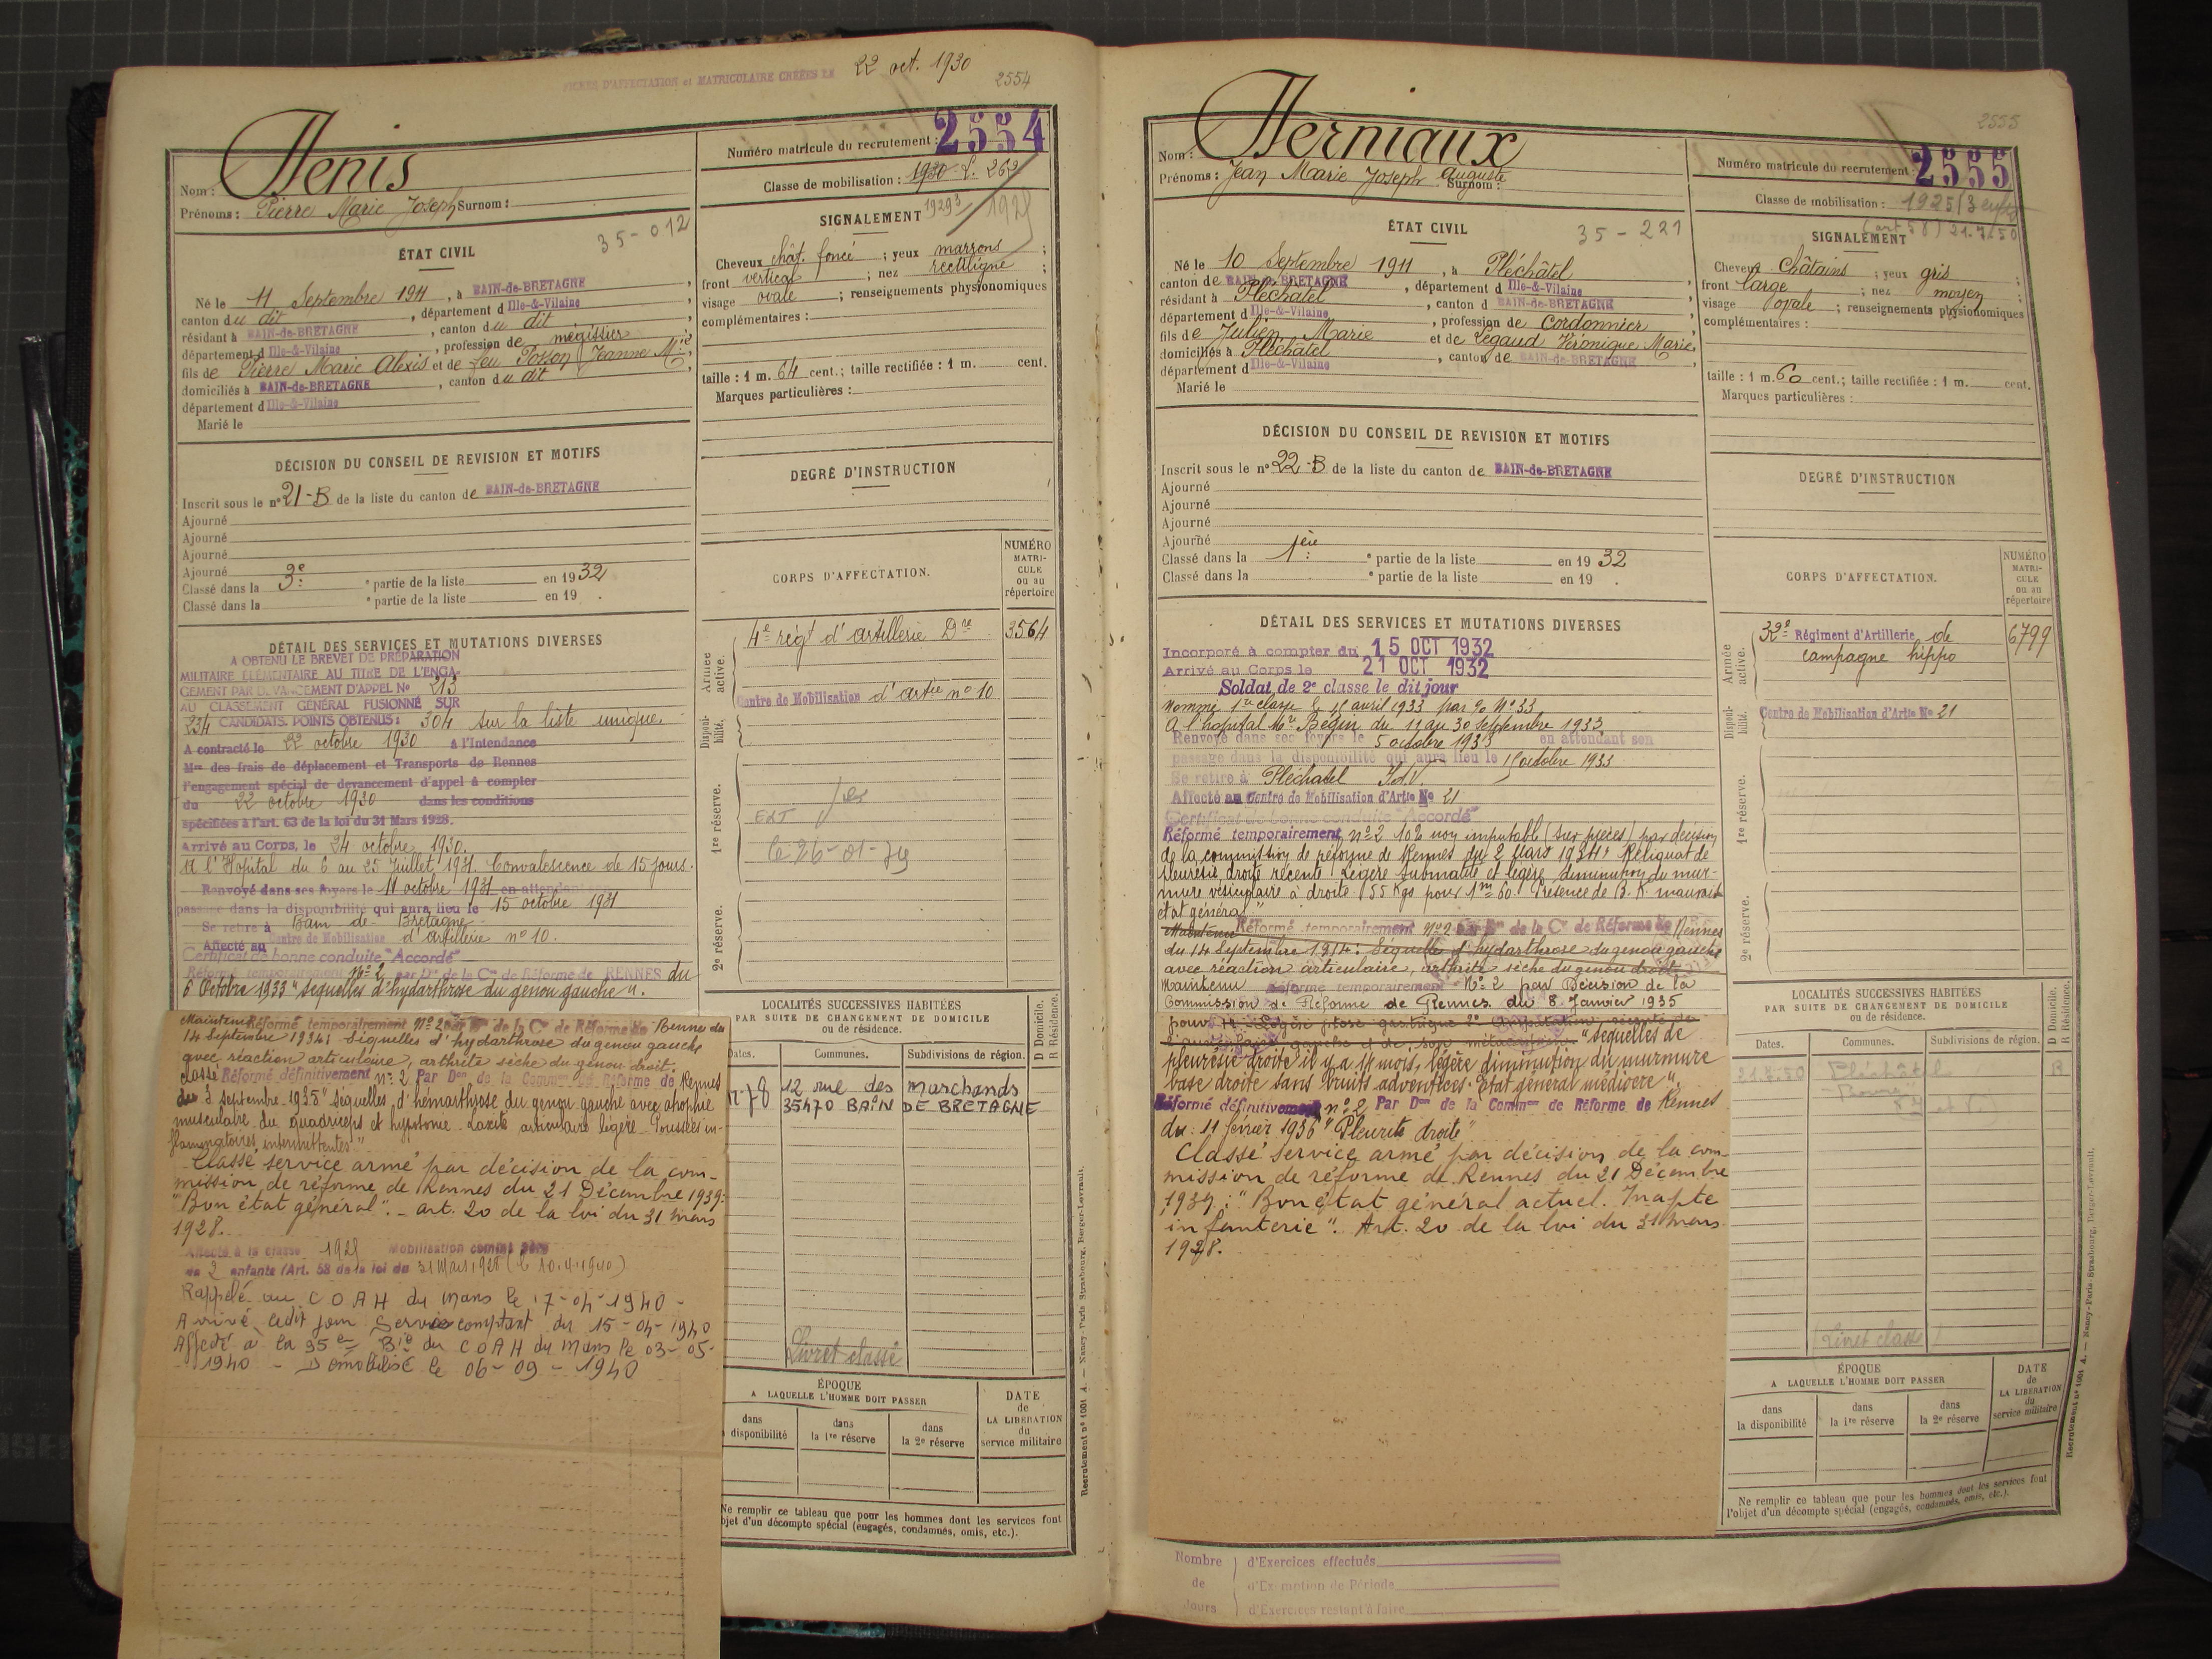 FICHES D'AFFECTATION et MATRICULAIRE CRÉÉES LE 22 oct. 1930
2554
Nom : Henis
Prénoms : Pierre Marie Joseph Surnom :
35-012
ÉTAT CIVIL
Né le 11 Septembre 1911, à BAIN-de-BRETAGNE,
canton du dit, département d Ille-&-Vilaine
résidant à BAIN-de-BRETAGNE, canton du dit
département d Ille-&-Vilaine, profession de mégissier
fils de Pierre Marie Alexis et de feu Posson Jeanne Mie
domiciliés à BAIN-de-BRETAGNE, canton du dit
département d Ille-&-Vilaine
Marié le
DÉCISION DU CONSEIL DE REVISION ET MOTIFS
Inscrit sous le n° 21-B de la liste du canton de BAIN-de-BRETAGNE
Ajourné
Ajourné
Ajourné
Ajourné
Classé dans la 3e e partie de la liste en 1932
Classé dans la e partie de la liste en 19 .
DÉTAIL DES SERVICES ET MUTATIONS DIVERSES
A OBTENU LE BREVET DE PRÉPARATION
MILITAIRE ÉLÉMENTAIRE AU TITRE DE L'ENGA-
GEMENT PAR DEVANCEMENT D'APPEL N° 213
AU CLASSEMENT GÉNÉRAL FUSIONNÉ SUR
234 CANDIDATS. POINTS OBTENUS : 304 sur la liste unique.
A contracté le 22 octobre 1930 à l'Intendance
Mre des frais de déplacement et Transports de Rennes
l'engagement spécial de devancement d'appel à compter
du 22 octobre 1930 dans les conditions
spécifiées à l'art. 63 de la loi du 31 Mars 1928.
Arrivé au Corps, le 24 octobre 1930.
A l'Hopital du 6 au 25 Juillet 1931. Convalescence de 15 jours.
Renvoyé dans ses foyers le 11 octobre 1931 en attendant son
passage dans la disponibilité qui aura lieu le 15 octobre 1931
Se retire à Bain de Bretagne
Affecté au Centre de Mobilisation d'artillerie n° 10.
Certificat de bonne conduite "Accordé"
Réformé temporairement N° 2 par Don de la Con de Réforme de RENNES du
6 Octobre 1933 "séquelles d'hydarthrose du genou gauche".
Maintenu Réformé temporairement N° 2 par Don de la Con de Réforme de Rennes du
14 Septembre 1934 : Séquelles d'hydarthrose du genou gauche
avec réaction articulaire, arthrite sèche du genou droit.
classé Réformé définitivement n° 2 Par Don de la Comon de Réforme de Rennes
du 3 septembre 1935 "séquelles d'hémarthrose du genou gauche avec atrophie
musculaire du quadriceps et hypotonie. Laxité articulaire légère. Poussées in-
flammatoires intermittentes"
Classé service armé par décision de la com-
mission de réforme de Rennes du 21 Décembre 1939 :
"Bon état général". - art. 20 de la loi du 31 mars
1928.
Affecté à la classe 1928 Mobilisation comme père
de 2 enfants (Art. 58 de la loi du 31 Mars 1928 (le 10.4.1940)
Rappelé au C O A H du Mans le 17-04-1940 -
Arrivé ledit jour. Service comptant du 15-04-1940
Affecté à la 95e Bie du C O A H du Mans le 03-05-
1940 - Démobilisé le 06-09-1940
Numéro matricule du recrutement : 2554
Classe de mobilisation : 1930
SIGNALEMENT
Cheveux chât. foncé ; yeux marrons ;
front vertical ; nez rectiligne ;
visage ovale ; renseignements physionomiques
complémentaires :
taille : 1 m. 64 cent. ; taille rectifiée : 1 m. cent.
Marques particulières :
DEGRÉ D'INSTRUCTION
CORPS D'AFFECTATION.
NUMÉRO MATRI-CULE ou au répertoire
Armée active.
4e régt d'artillerie Dre 3564
Centre de Mobilisation d'artie n° 10
Disponi-bilité.
1re réserve.
EXT
le 26-01-79
2e réserve.
LOCALITÉS SUCCESSIVES HABITÉES
PAR SUITE DE CHANGEMENT DE DOMICILE
ou de résidence.
D Domicile. R Résidence.
Dates. Communes. Subdivisions de région.
12 rue des Marchands
35470 BAIN DE BRETAGNE
Livret classé
ÉPOQUE
A LAQUELLE L'HOMME DOIT PASSER
DATE de LA LIBÉRATION du service militaire
dans la disponibilité
dans la 1re réserve
dans la 2e réserve
Ne remplir ce tableau que pour les hommes dont les services font
l'objet d'un décompte spécial (engagés, condamnés, omis, etc.).
Recrutement n° 1001 A. — Nancy-Paris-Strasbourg, Berger-Levrault.
2555
Nom : Herniaux
Prénoms : Jean Marie Joseph Auguste Surnom :
35-221
ÉTAT CIVIL
Né le 10 Septembre 1911, à Pléchâtel
canton de BAIN-de-BRETAGNE, département d Ille-&-Vilaine
résidant à Pléchatel, canton d BAIN-de-BRETAGNE
département d Ille-&-Vilaine, profession de Cordonnier
fils de Julien Marie et de Légaud Véronique Marie
domiciliés à Pléchâtel, canton de BAIN-de-BRETAGNE
département d Ille-&-Vilaine
Marié le
DÉCISION DU CONSEIL DE REVISION ET MOTIFS
Inscrit sous le n° 22-B de la liste du canton de BAIN-de-BRETAGNE
Ajourné
Ajourné
Ajourné
Ajourné
Classé dans la 1ère e partie de la liste en 1932
Classé dans la e partie de la liste en 19 .
DÉTAIL DES SERVICES ET MUTATIONS DIVERSES
Incorporé à compter du 15 OCT 1932
Arrivé au Corps le 21 OCT 1932
Soldat de 2e classe le dit jour
Nommé 1re classe le 15 avril 1933 par N° 33
A l'hopital Mre Bégin du 11 au 30 septembre 1933.
Renvoyé dans ses foyers le 5 octobre 1933 en attendant son
passage dans la disponibilité qui aura lieu le 15 octobre 1933
Se retire à Pléchatel I&V
Affecté au Centre de Mobilisation d'Artie No 21
Certificat de bonne conduite "Accordé"
Réformé temporairement n° 2 10% non imputable (sur pièces) par décision
de la commission de réforme de Rennes du 2 Mars 1934 : Reliquat de
pleurésie droite récente. Légère submatité et légère diminution du mur-
mure vésiculaire à droite. 55 Kgs pour 1m 60. Présence de B. K. mauvais
état général"
Maintenu Réformé temporairement N° 2 par Don de la Con de Réforme de Rennes
du 14 Septembre 1914 : Séquelles d'hydarthrose du genou gauche
avec réaction articulaire, arthrite sèche du genou droit
Maintenu réformé temporairement N° 2 par Décision de la
Commission de Réforme de Rennes du 8 Janvier 1935
"séquelles de
pleurésie droite il y a 14 mois, légère diminution du murmure
base droite sans bruits adventices. Etat général médiocre".
Réformé définitivement n° 2 Par Don de la Comon de Réforme de Rennes
du : 11 février 1936 "Pleurite droite"
Classé service armé par décision de la com-
mission de réforme de Rennes du 21 Décembre
1939 : "Bon état général actuel. Inapte
infanterie". Art. 20 de la loi du 31 mars
1928.
Nombre de Jours
d'Exercices effectués
d'Exemption de Période
d'Exercices restant à faire
Numéro matricule du recrutement : 2555
Classe de mobilisation : 1925
(art 58) 21.7.50
SIGNALEMENT
Cheveux Châtains ; yeux gris ;
front large ; nez moyen ;
visage ovale ; renseignements physionomiques
complémentaires :
taille : 1 m. 60 cent. ; taille rectifiée : 1 m. cent.
Marques particulières :
DEGRÉ D'INSTRUCTION
CORPS D'AFFECTATION.
NUMÉRO MATRI-CULE ou au répertoire
Armée active.
32e Régiment d'Artillerie de 6799
campagne hippo
Disponi-bilité.
Centre de Mobilisation d'Artie No 21
1re réserve.
2e réserve.
LOCALITÉS SUCCESSIVES HABITÉES
PAR SUITE DE CHANGEMENT DE DOMICILE
ou de résidence.
D Domicile. R Résidence.
Dates. Communes. Subdivisions de région.
21.7.50 Pléchâtel
Livret classé
ÉPOQUE
A LAQUELLE L'HOMME DOIT PASSER
DATE de LA LIBÉRATION du service militaire
dans la disponibilité
dans la 1re réserve
dans la 2e réserve
Ne remplir ce tableau que pour les hommes dont les services font
l'objet d'un décompte spécial (engagés, condamnés, omis, etc.).
Recrutement n° 1001 A. — Nancy-Paris-Strasbourg, Berger-Levrault.